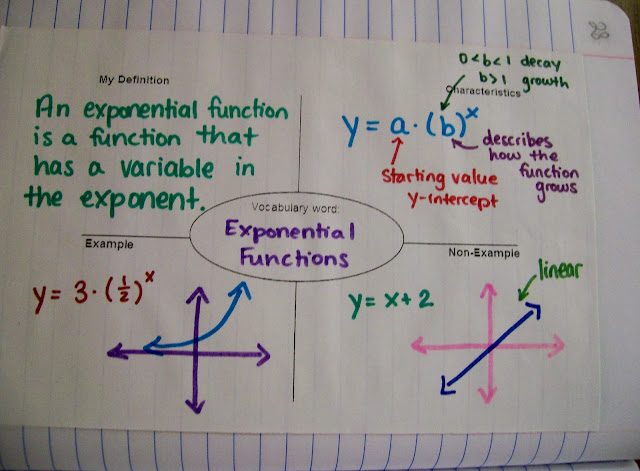 My Definition
An exponential function
is a function that
has a variable in
the exponent.
0<b<1 decay
b>1 growth
Characteristics
y = a · (b)^x
describes
how the
function
grows
Starting value
y-intercept
Vocabulary word:
Exponential
Functions
Example
y = 3 · (½)^x
Non-Example
y = x + 2
linear